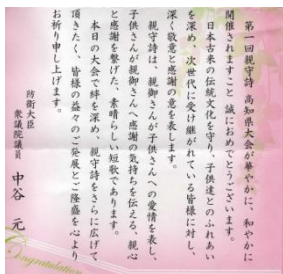 第一回親守詩　高知県大会が華やかに、和やかに
開催されますこと、誠におめでとうございます。
日本古来の伝統文化を守り、子供達とのふれあい
を深め、次世代に受け継がれている皆様に対し、
深く敬意と感謝の意を表します。
親守詩は、親御さんが子供さんへの愛情を表し、
子供さんが親御さんへ感謝の気持ちを伝える、親心
と感謝を繋げた、素晴らしい短歌であります。
本日の大会で絆を深め、親守詩をさらに広げて
頂きたく、皆様の益々のご発展とご隆盛を心より
お祈り申し上げます。
防衛大臣
衆議院議員　中谷　元
Congratulation